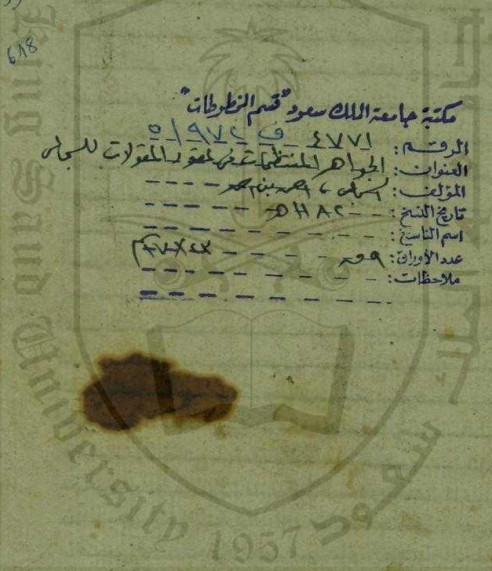 618
مكتبة جامعة الملك سعود "قسم المخطوطات"
الرقم: ٤٧٧١ ف ٥/٩٧٢
العنوان: الجواهر المنتظمات في عقود المقولات للسجاعي
المؤلف: السجاعي، احمد بن احمد
تاريخ النسخ: ١١٨٢هـ
اسم الناسخ:
عدد الأوراق: ٩ ق
ملاحظات:
King Saud University
جامعة الملك سعود
1957